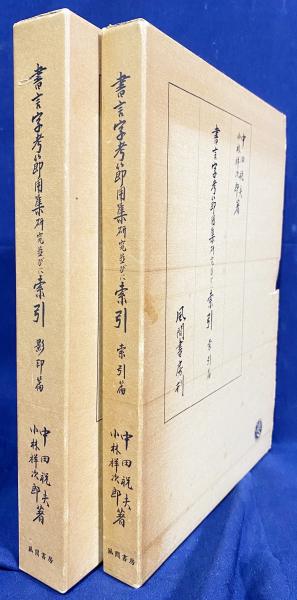 書言字考節用集研究並びに索引 影印篇
中田祝夫
小林祥次郎著
風間書房
書言字考節用集研究並びに索引 索引篇
中田祝夫
小林祥次郎著
風間書房
中田祝夫
小林祥次郎著
書言字考節用集研究並びに索引 索引篇
風間書房刊